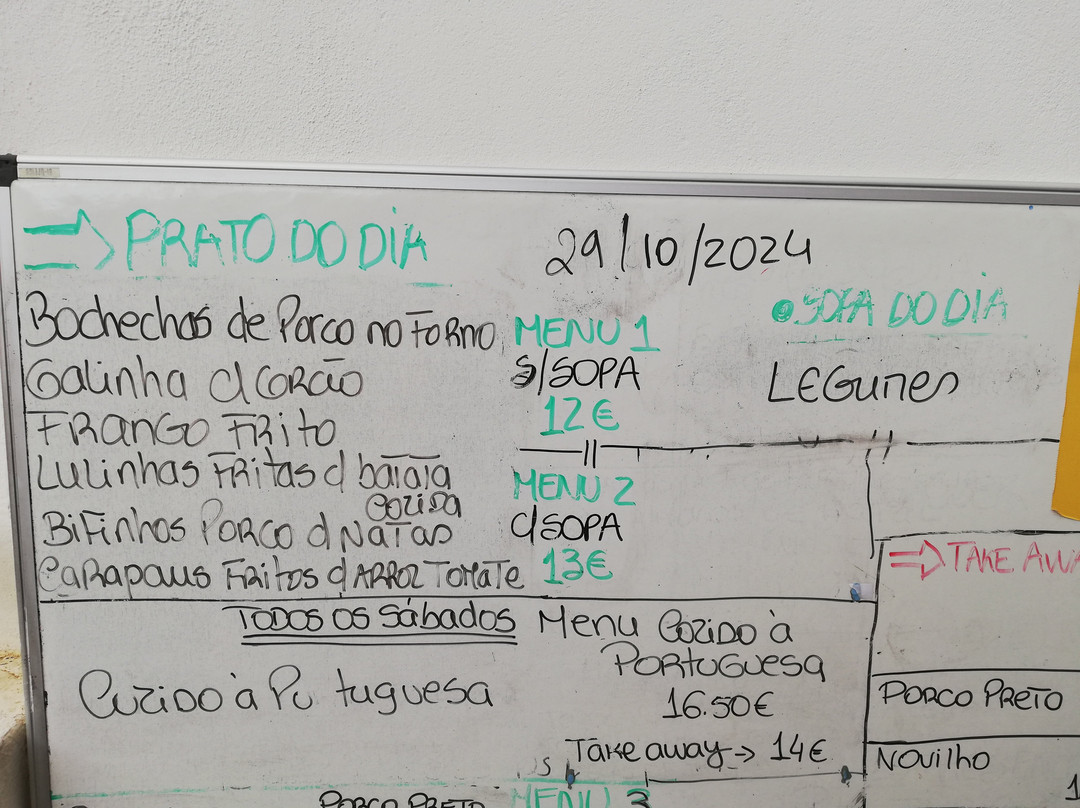 PRATO DO DIA
29/10/2024
Bochechas de Porco no Forno
Galinha c/ Grão
Frango Frito
Lulinhas Fritas c/ batata
cozida
Bifinhos Porco c/ Natas
Carapaus Fritos c/ ARROZ TOMATE
MENU 1
S/SOPA
12€
MENU 2
C/SOPA
13€
SOPA DO DIA
LEGUMES
TODOS OS SÁBADOS
Cozido à Po tuguesa
Menu Cozido à
PORTUGUESA
16.50€
Take away → 14€
TAKE AWA
PORCO PRETO
NOVILHO
1
PORCO PRETO
MENU 3